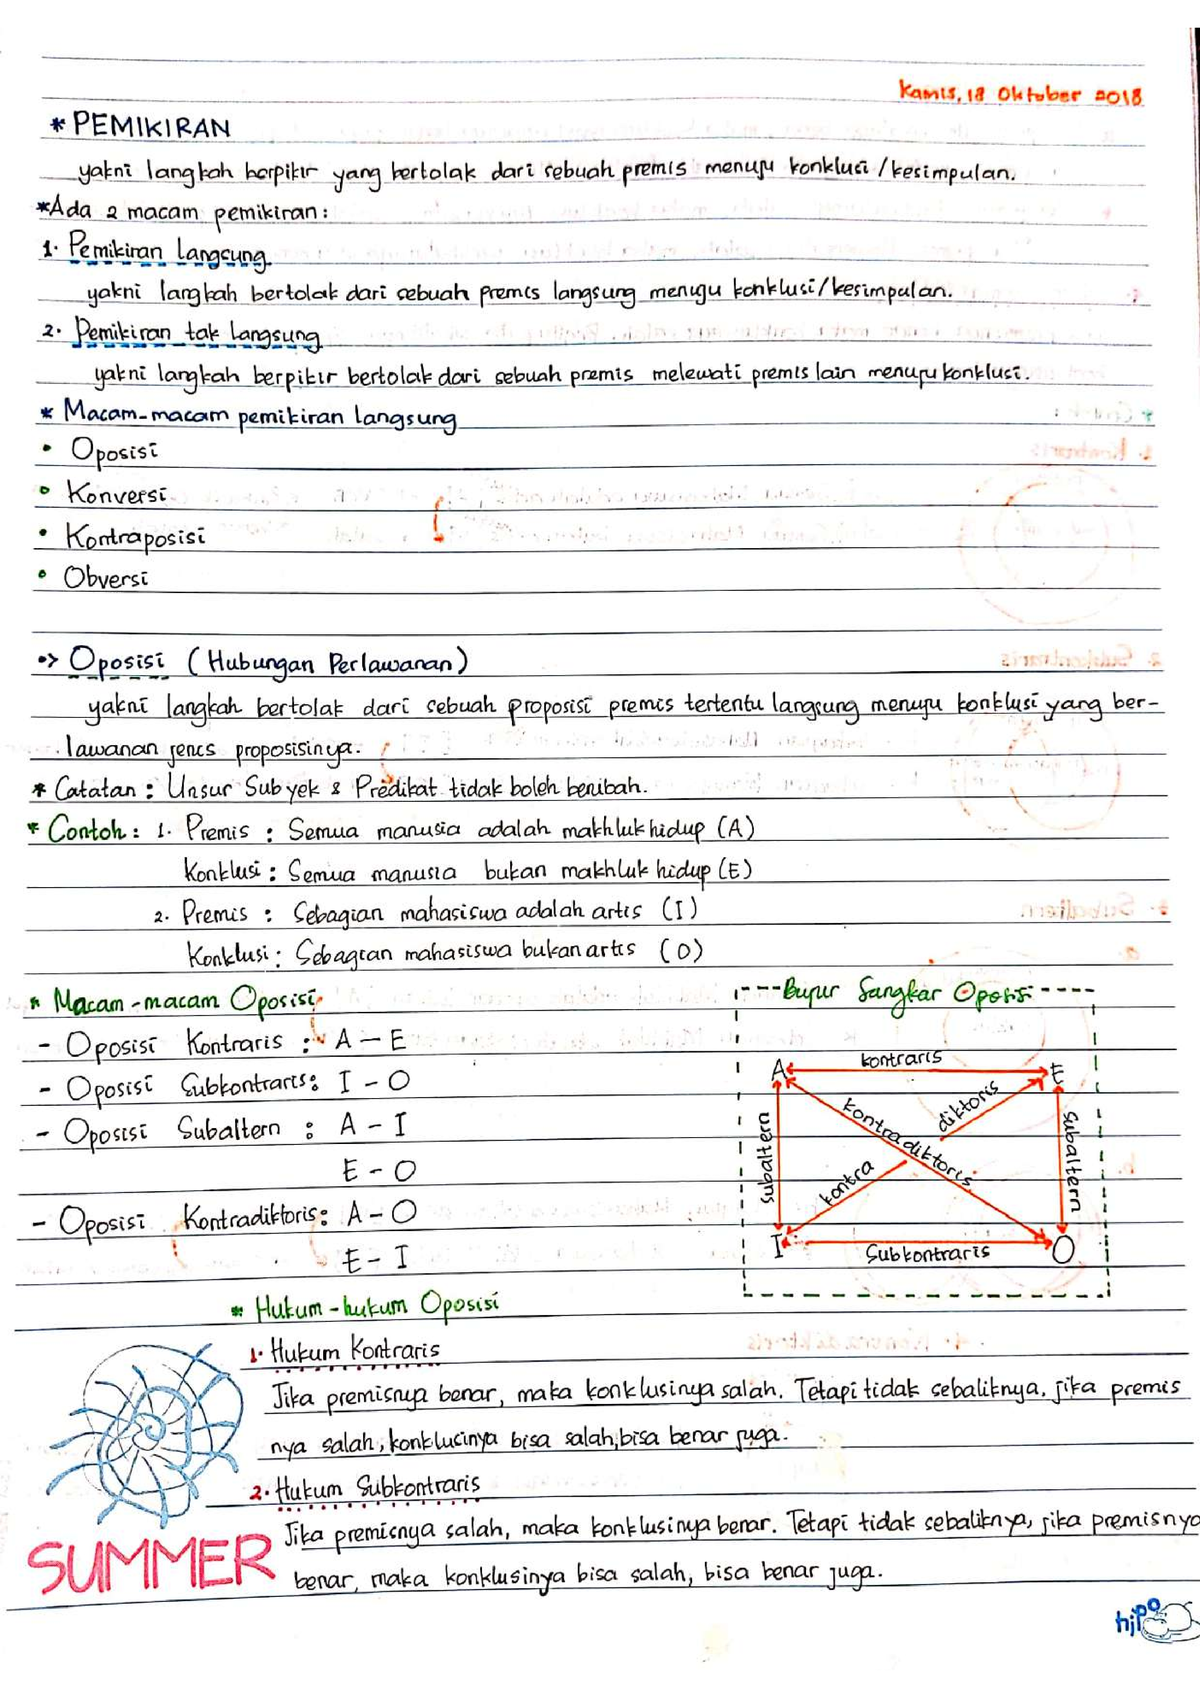 Kamis, 18 Oktober 2018
* PEMIKIRAN
yakni langkah berpikir yang bertolak dari sebuah premis menuju konklusi/kesimpulan.
*Ada 2 macam pemikiran:
1. Pemikiran Langsung
yakni langkah bertolak dari sebuah premis langsung menuju konklusi/kesimpulan.
2. Pemikiran tak langsung
yakni langkah berpikir bertolak dari sebuah premis melewati premis lain menuju konklusi.
* Macam-macam pemikiran langsung
• Oposisi
• Konversi
• Kontraposisi
• Obversi
•> Oposisi (Hubungan Perlawanan)
yakni langkah bertolak dari sebuah proposisi premis tertentu langsung menuju konklusi yang ber-
lawanan jenis proposisinya.
* Catatan : Unsur Subyek & Predikat tidak boleh berubah.
* Contoh : 1. Premis : Semua manusia adalah makhluk hidup (A)
Konklusi : Semua manusia bukan makhluk hidup (E)
2. Premis : Sebagian mahasiswa adalah artis (I)
Konklusi : Sebagian mahasiswa bukan artis (O)
* Macam-macam Oposisi
- Oposisi Kontraris : A - E
- Oposisi Subkontraris : I - O
- Oposisi Subaltern : A - I
E - O
- Oposisi Kontradiktoris : A - O
E - I
Bujur Sangkar Oposisi
A kontraris E
subaltern
kontradiktoris
diktoris
kontra
subaltern
I Subkontraris O
* Hukum-hukum Oposisi
1. Hukum Kontraris
Jika premisnya benar, maka konklusinya salah. Tetapi tidak sebaliknya, jika premis
nya salah, konklusinya bisa salah, bisa benar juga.
2. Hukum Subkontraris
Jika premisnya salah, maka konklusinya benar. Tetapi tidak sebaliknya, jika premisnya
benar, maka konklusinya bisa salah, bisa benar juga.
SUMMER
hipo